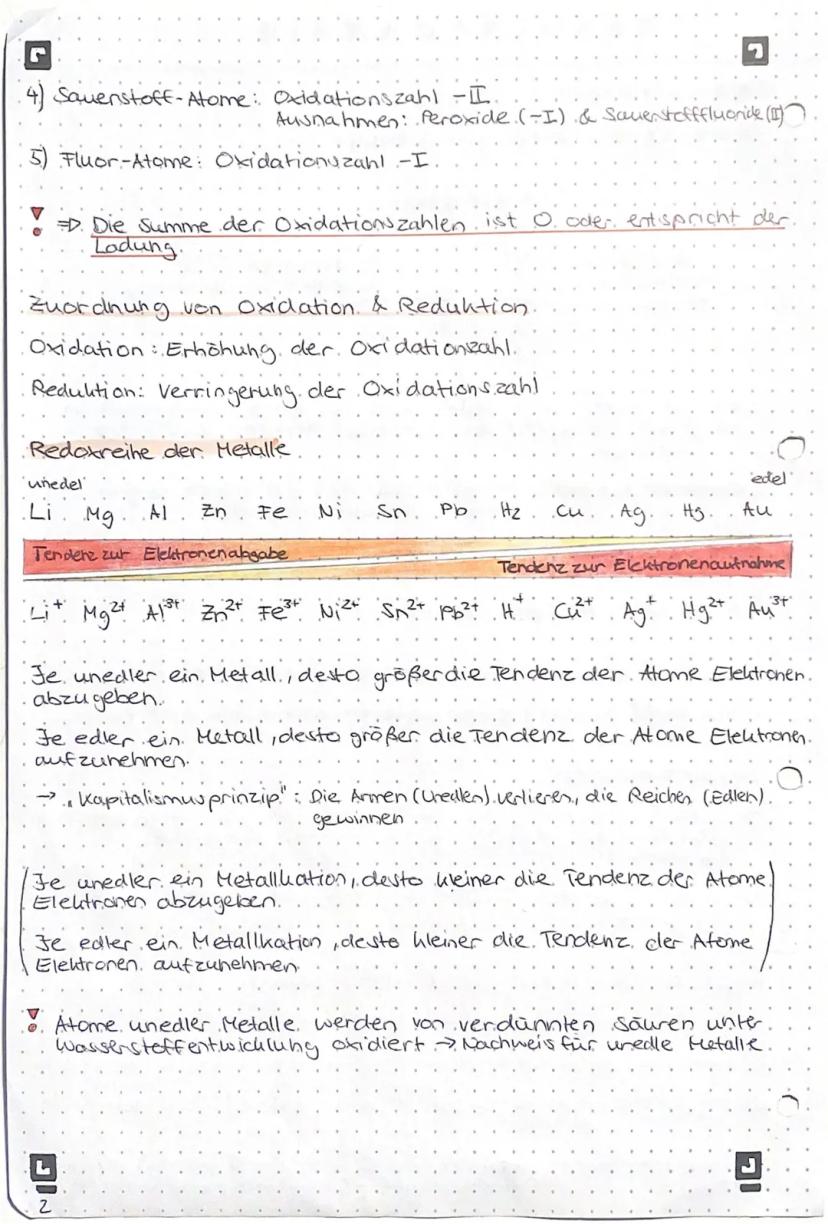 4) Sauerstoff-Atome: Oxidationszahl -II
Ausnahmen: Peroxide (-I) & Sauerstofffluoride (II)
5) Fluor-Atome: Oxidationszahl -I
! ⇒ Die Summe der Oxidationszahlen ist 0 oder entspricht der
Ladung.
Zuordnung von Oxidation & Reduktion
Oxidation: Erhöhung der Oxidationzahl
Reduktion: Verringerung der Oxidationszahl
Redoxreihe der Metalle
unedel edel
Li Mg Al Zn Fe Ni Sn Pb H2 Cu Ag Hg Au
Tendenz zur Elektronenabgabe
Tendenz zur Elektronenaufnahme
Li⁺ Mg²⁺ Al³⁺ Zn²⁺ Fe³⁺ Ni²⁺ Sn²⁺ Pb²⁺ H⁺ Cu²⁺ Ag⁺ Hg²⁺ Au³⁺
Je unedler ein Metall, desto größer die Tendenz der Atome Elektronen
abzugeben.
Je edler ein Metall, desto größer die Tendenz der Atome Elektronen
aufzunehmen.
→ „Kapitalismusprinzip": Die Armen (Unedlen) verlieren, die Reichen (Edlen)
gewinnen
(Je unedler ein Metallkation, desto kleiner die Tendenz der Atome
Elektronen abzugeben.
Je edler ein Metallkation, desto kleiner die Tendenz der Atome
Elektronen aufzunehmen)
! Atome unedler Metalle werden von verdünnten Säuren unter
Wasserstoffentwicklung oxidiert → Nachweis für unedle Metalle
2